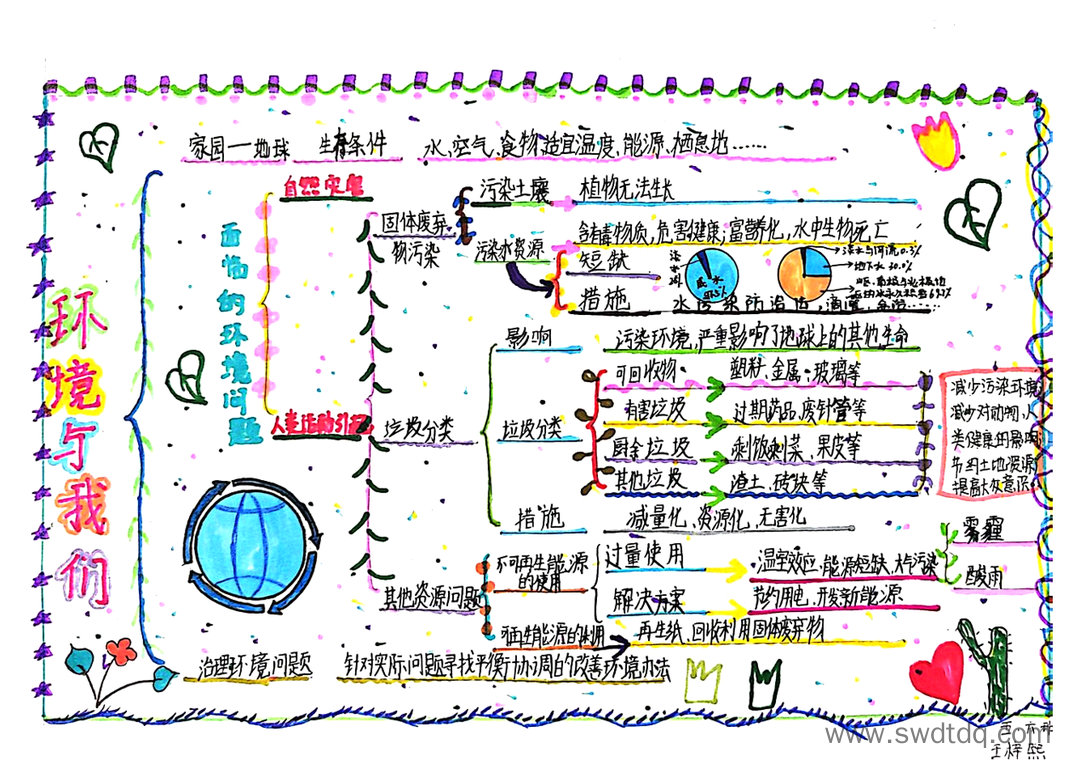 家园—地球 生存条件 水,空气,食物,适宜温度,能源,栖息地……
环境与我们
面临的环境问题
自然灾害
人类活动引起
固体废弃物污染
污染土壤 植物无法生长
污染水资源
含有毒物质,危害健康;富营养化,水中生物死亡
短缺
淡水与河流0.3%
地下水30.0%
措施 水污染防治法,滴灌,
垃圾分类
影响 污染环境,严重影响了地球上的其他生命
垃圾分类
可回收物 塑料、金属、玻璃等
有害垃圾 过期药品、废针管等
厨余垃圾 剩饭剩菜、果皮等
其他垃圾 渣土、砖块等
减少污染环境
减少对动物,人
类健康的影响
节约土地资源
提高
措施 减量化、资源化、无害化
其他资源问题
不可再生能源的使用
过量使用 温室效应、能源短缺、大气污染
雾霾
酸雨
解决方案 节约用电、开发新能源
可再生能源的使用 再生纸、回收利用固体废弃物
治理环境问题 针对实际问题寻找平衡协调的改善环境办法
www.swdtdq.com
王梓熙